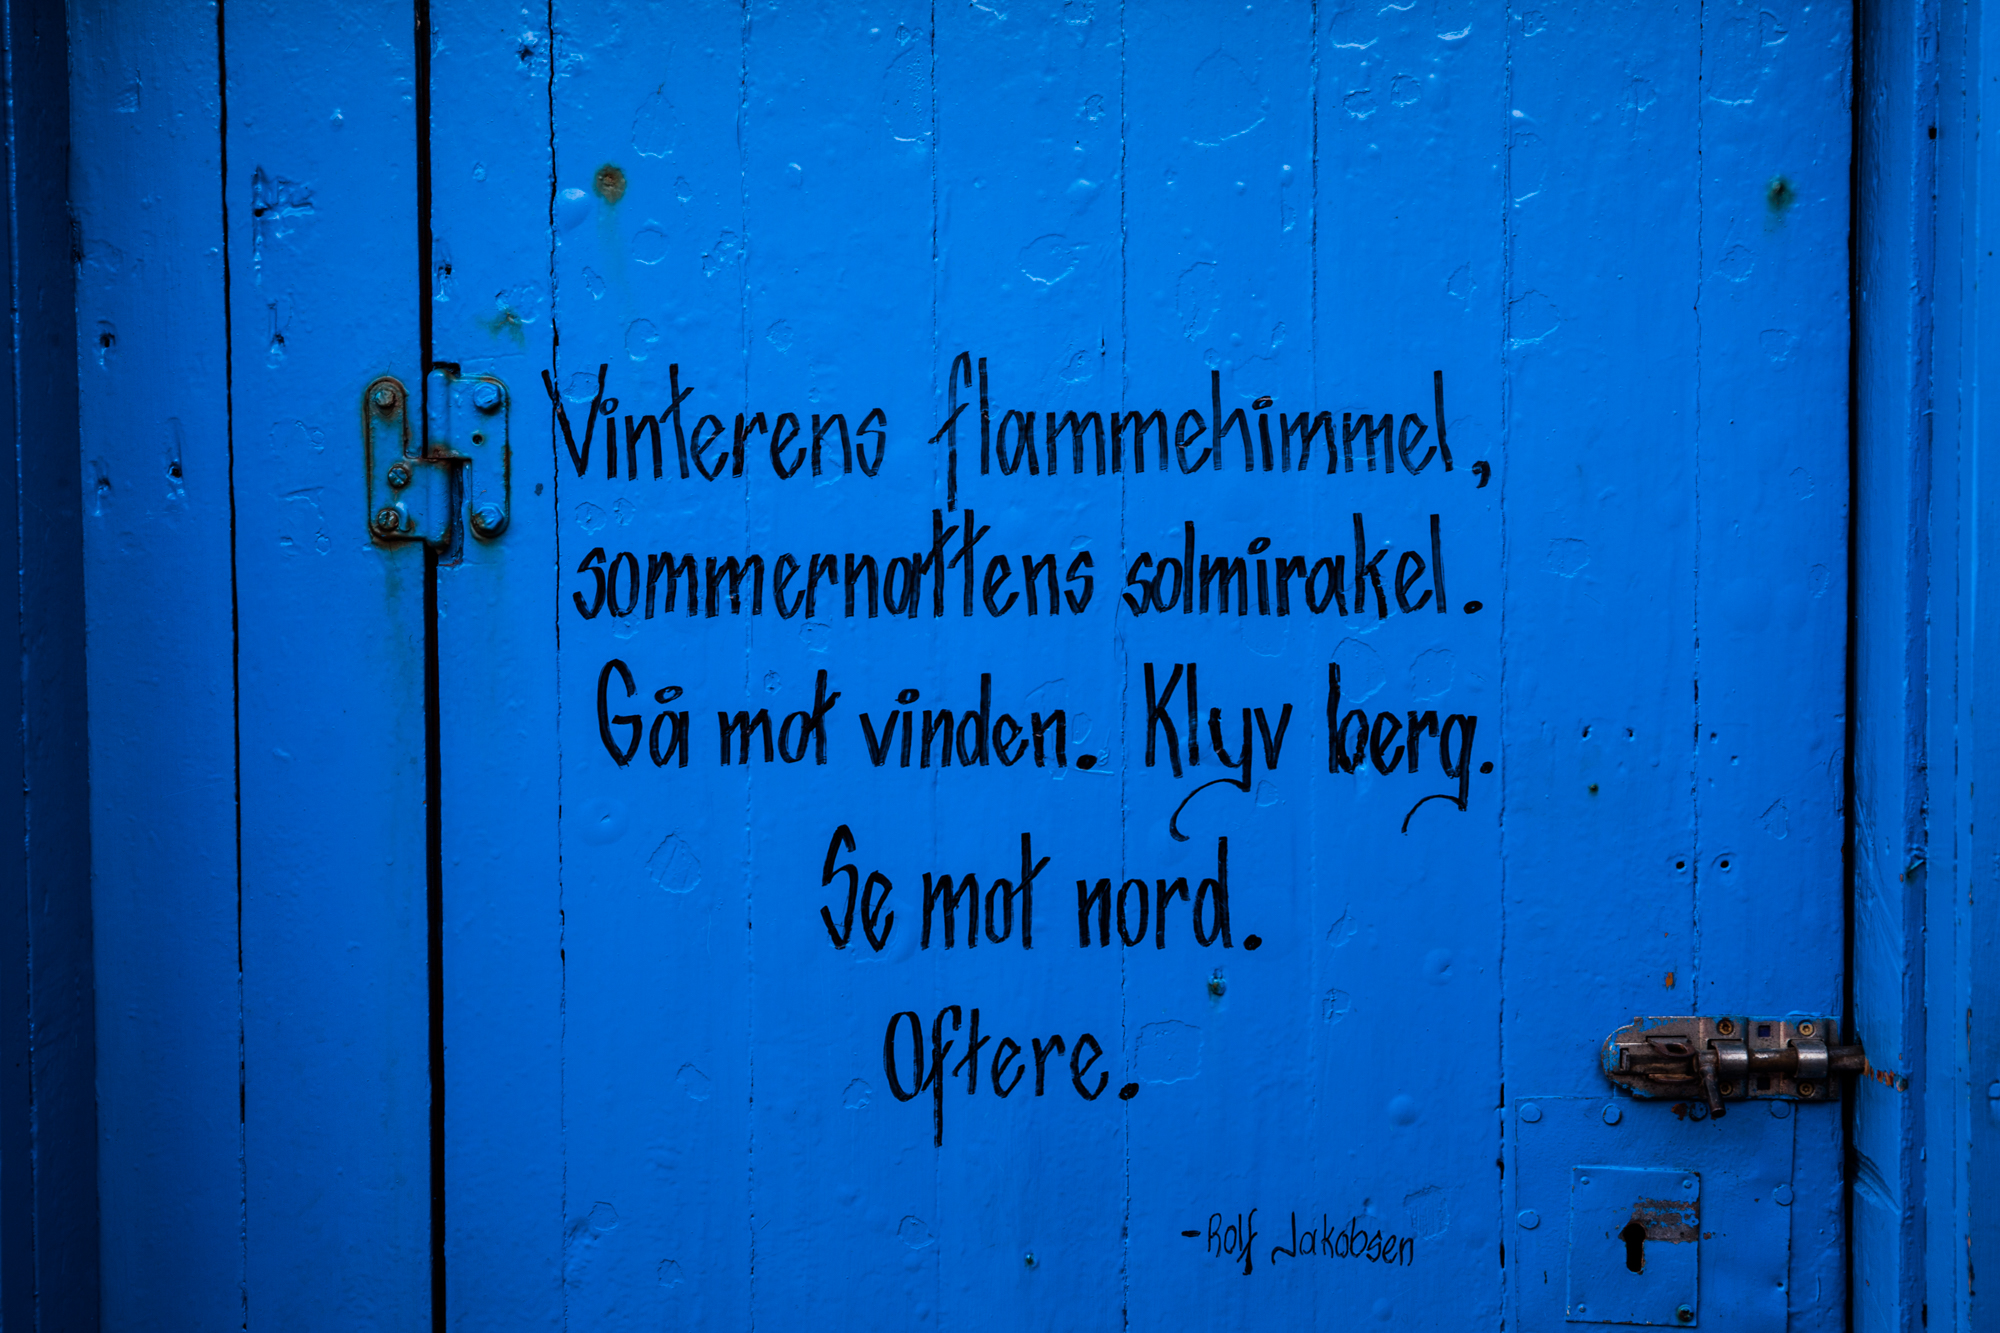 Vinterens flammehimmel,
sommernattens solmirakel.
Gå mot vinden. Klyv berg.
Se mot nord.
Oftere.
-Rolf Jakobsen